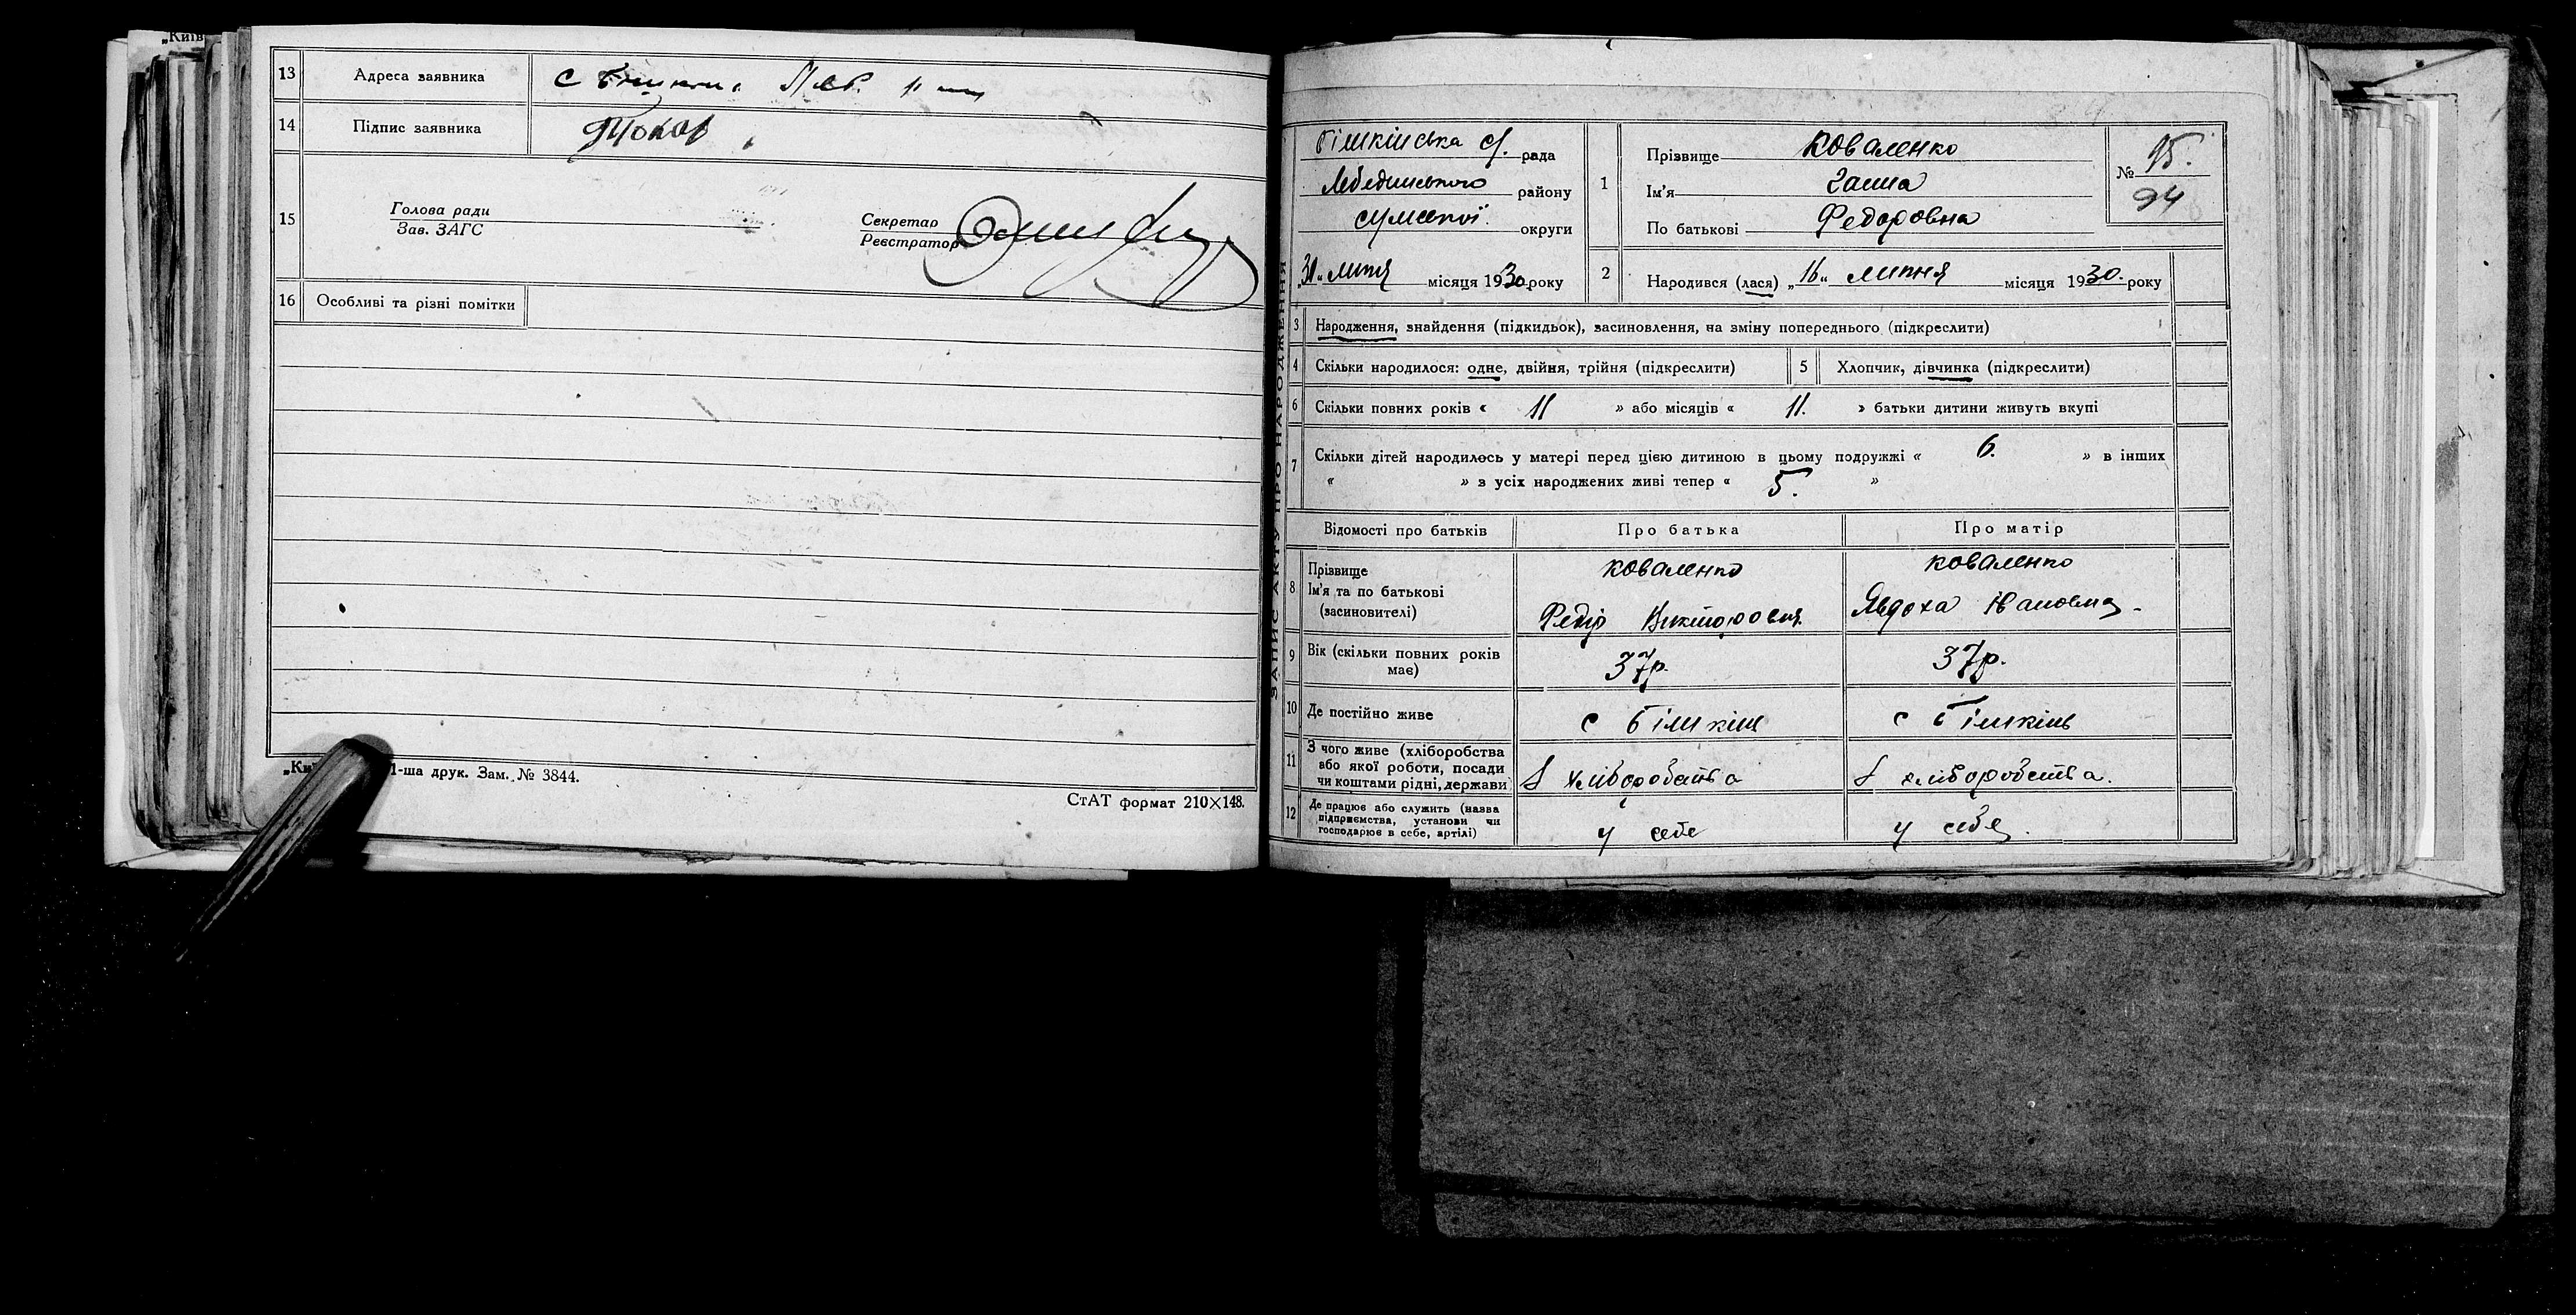 „Київ
13 Адреса заявника с
14 Підпис заявника Токар
15 Голова ради
Зав. ЗАГС
Секретар
Реєстратор
16 Особливі та різні помітки
1-ша друк. Зам. № 3844.
СтАТ формат 210×148.
ЗАПИС АКТУ ПРО НАРОДЖЕННЯ
Бішкінська с/. рада
Лебединського району
Сумської. округи
„30„ липня місяця 1930. року
1 Прізвище Коваленко
Ім'я Ганна
По батькові Федоровна
№ 95.
94
2 Народився (лася) „16„ липня місяця 1930. року
3 Народження, знайдення (підкидьок), засиновлення, на зміну попереднього (підкреслити)
4 Скільки народилося: одне, двійня, трійня (підкреслити) 5 Хлопчик, дівчинка (підкреслити)
6 Скільки повних років « 11 » або місяців « 11. » батьки дитини живуть вкупі
7 Скільки дітей народилось у матері перед цією дитиною в цьому подружжі « 6. » в інших
« » з усіх народжених живі тепер « 5. »
Відомості про батьків Про батька Про матір
8 Прізвище Коваленко Коваленко
Ім'я та по батькові
(засиновителі) Федір Викторовия Явдоха Івановна -
9 Вік (скільки повних років
має) 37р. 37р.
10 Де постійно живе с Бішкінь с Бішкінь
11 З чого живе (хліборобства
або якої роботи, посади
чи коштами рідні, держави) З хліборобства З хліборобства.
12 Де працює або служить (назва
підприємства, установи чи
господарює в себе, артілі) у себе у себе.